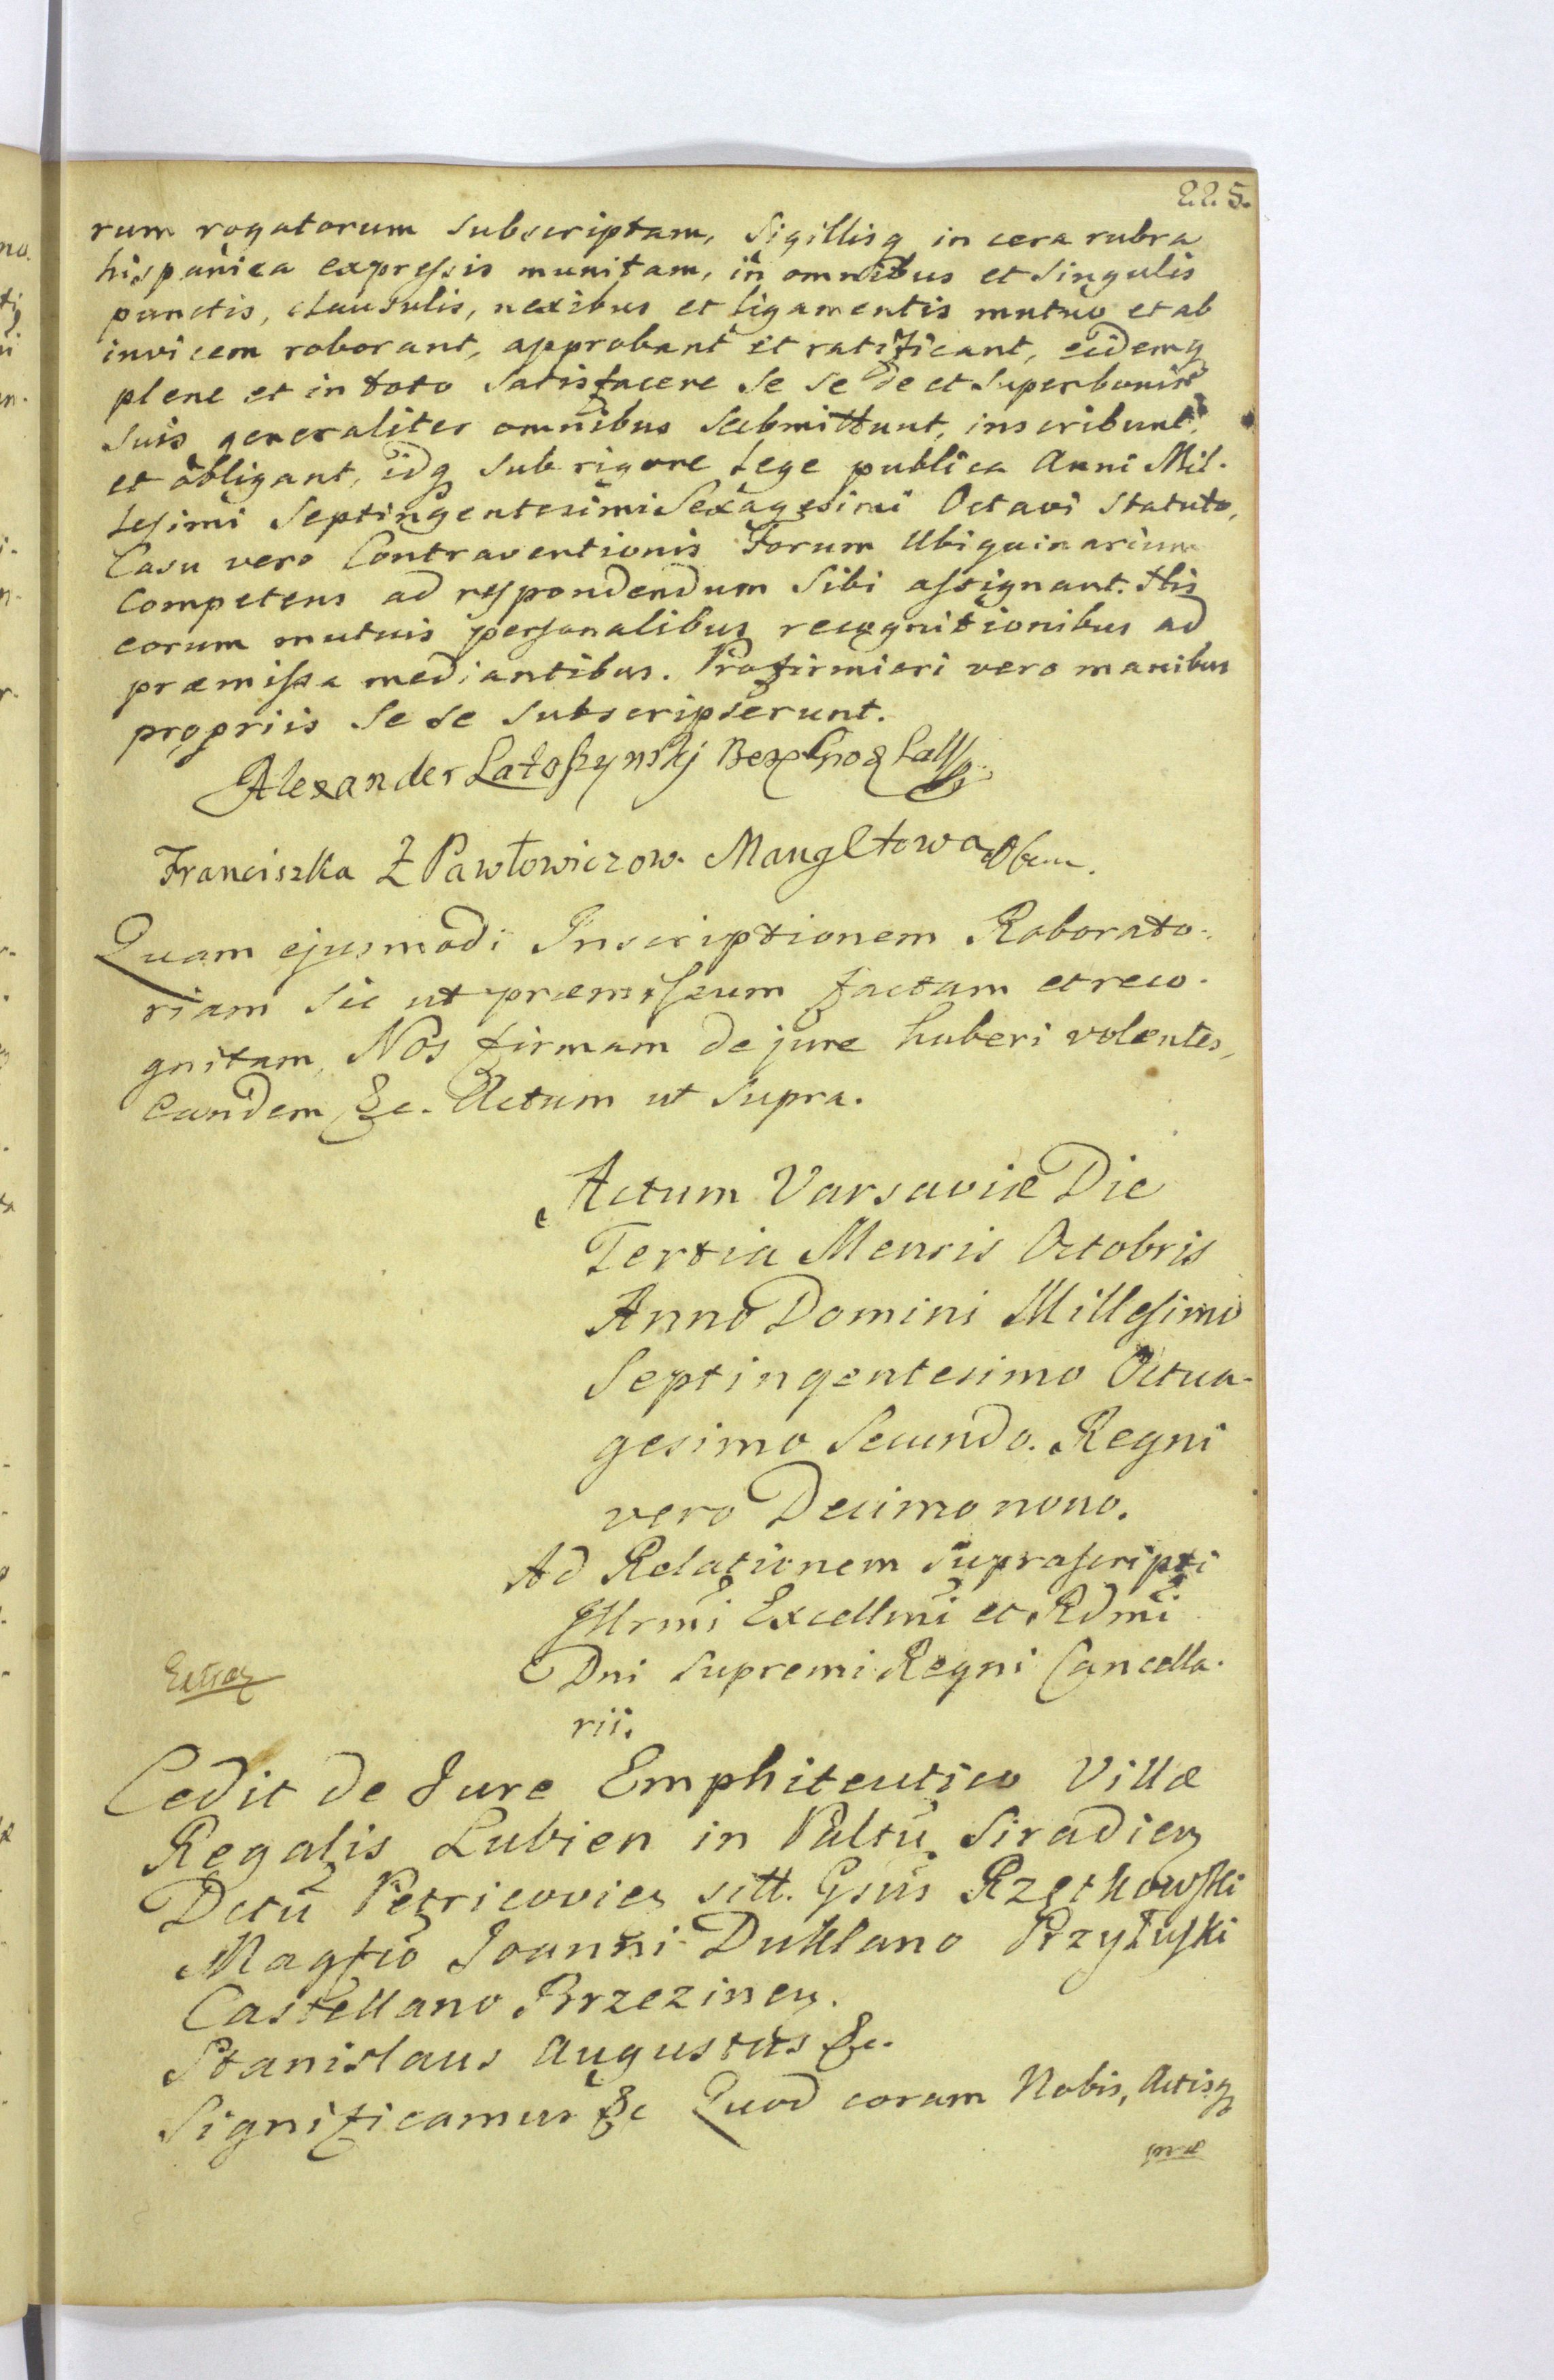 225.
rum rogatorum subscriptam, Sigillisq in cera rubra
hispanica expressis munitam, in omnibus et singulis
punctis, clausulis, nexibus et ligamentis mutuo et ab
invicem roborant, approbant et ratificant, eidemq
plene et in toto satisfacere se se de et super bonis
suis generaliter omnibus submittunt, inscribunt
et obligant, idq sub rigore lege publica Anni Mil-
lesimi Septingentesimi Sexagesimi Octavi statuto,
Casu vero Contraventionis Forum Ubiquinarium
Competens ad respondendum sibi assignant. His
eorum mutuis personalibus recognitionibus ad
præmissa mediantibus. Pro firmiori vero manibus
propriis se se subscripserunt.
Alexander Latoszynskj
Franciszka Z Pawłowiczow Mangltowa
Quam ejusmodi Inscriptionem Roborato-
riam sic ut præmissum factam et reco-
gnitam, Nos firmam de jure haberi volentes,
Eandem &c. Actum ut supra.
Actum Varsaviæ Die
Tertia Mensis Octobris
Anno Domini Millesimo
Septingentesimo Octua-
gesimo Secundo. Regni
vero Decimo nono.
Ad Relationem suprascripti
Illrmi Excellmi et Rdmi
Dni Supremi Regni Cancella-
rii.
Cedit de Jure Emphiteutico Villæ
Regalis Lubien in Paltu Siradien
Dctu Petricovien sitt. Gsus Rzętkowski
Magfco Joanni Duklano Przyłuski
Castellano Brzezinen.
Stanislaus Augustus &c.
Significamus &c Quod coram Nobis, Actisq
præ